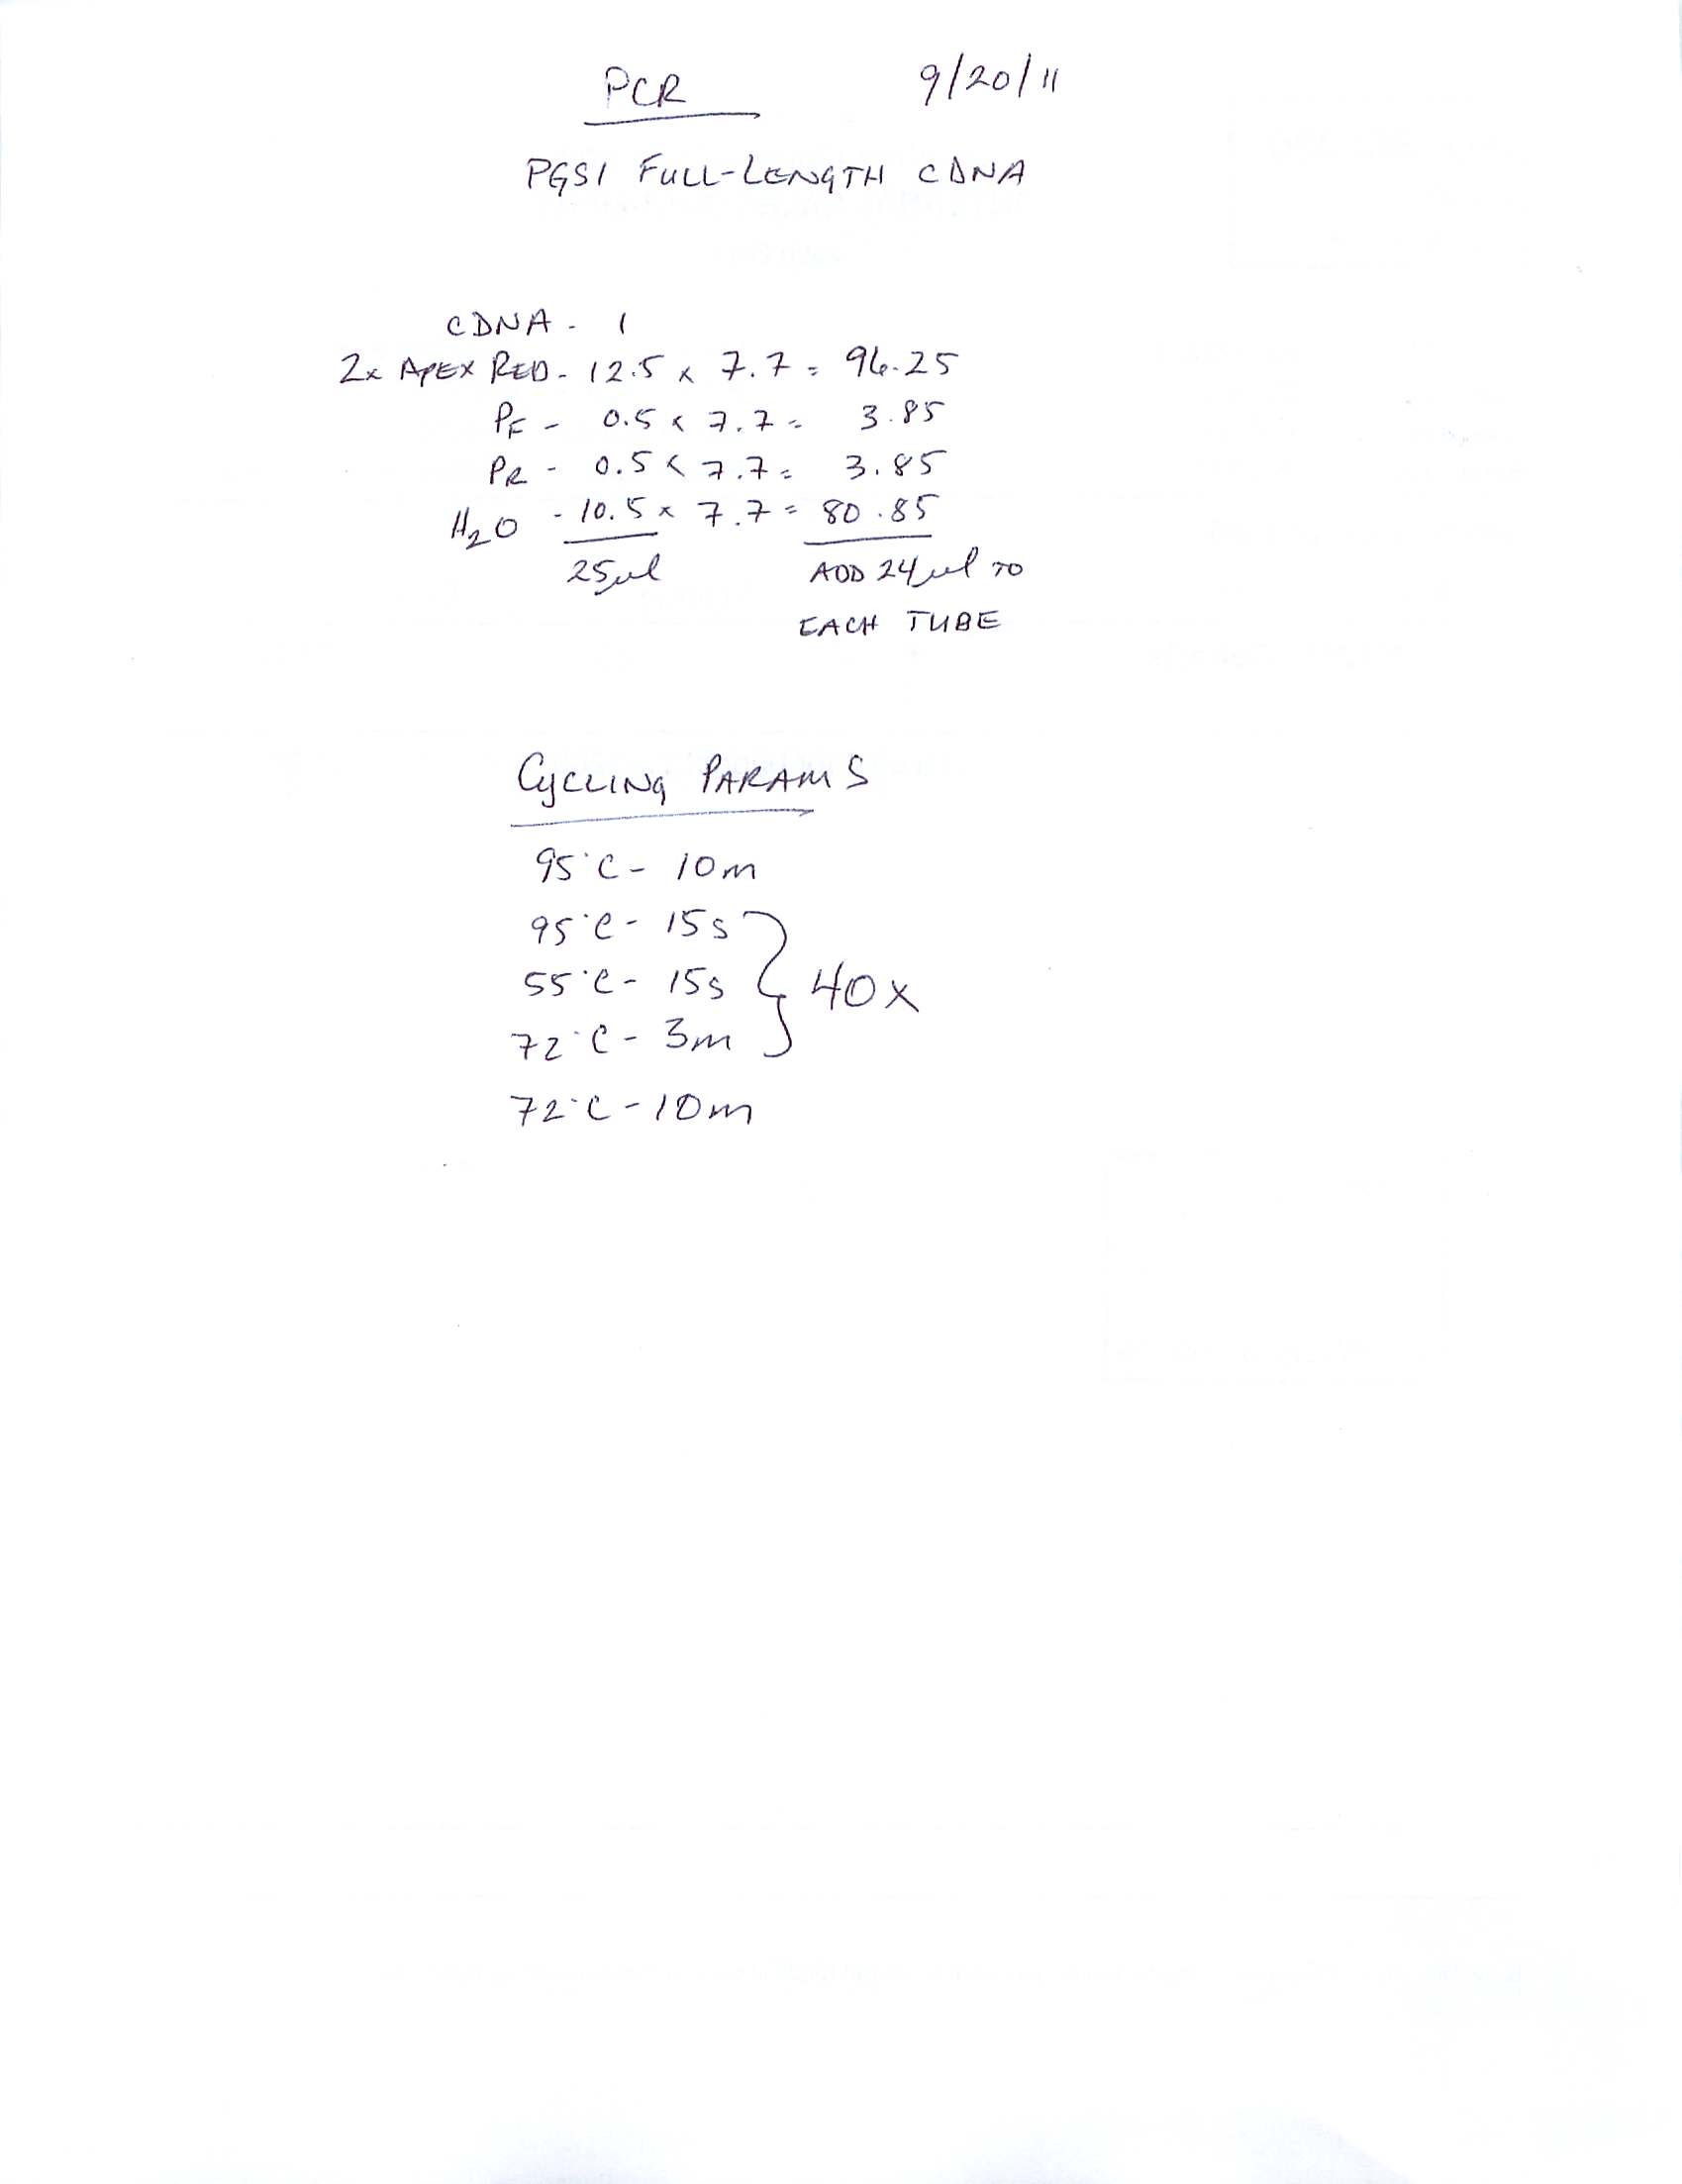 PCR 9/20/11
PGS1 FULL-LENGTH CDNA
CDNA - 1
2x APEX RED - 12.5 x 7.7 = 96.25
PF - 0.5 x 7.7 = 3.85
PR - 0.5 x 7.7 = 3.85
H2O - 10.5 x 7.7 = 80.85
25µl ADD 24µl TO
EACH TUBE
CYCLING PARAMS
95°C - 10m
95°C - 15s
55°C - 15s } 40x
72°C - 3m
72°C - 10m